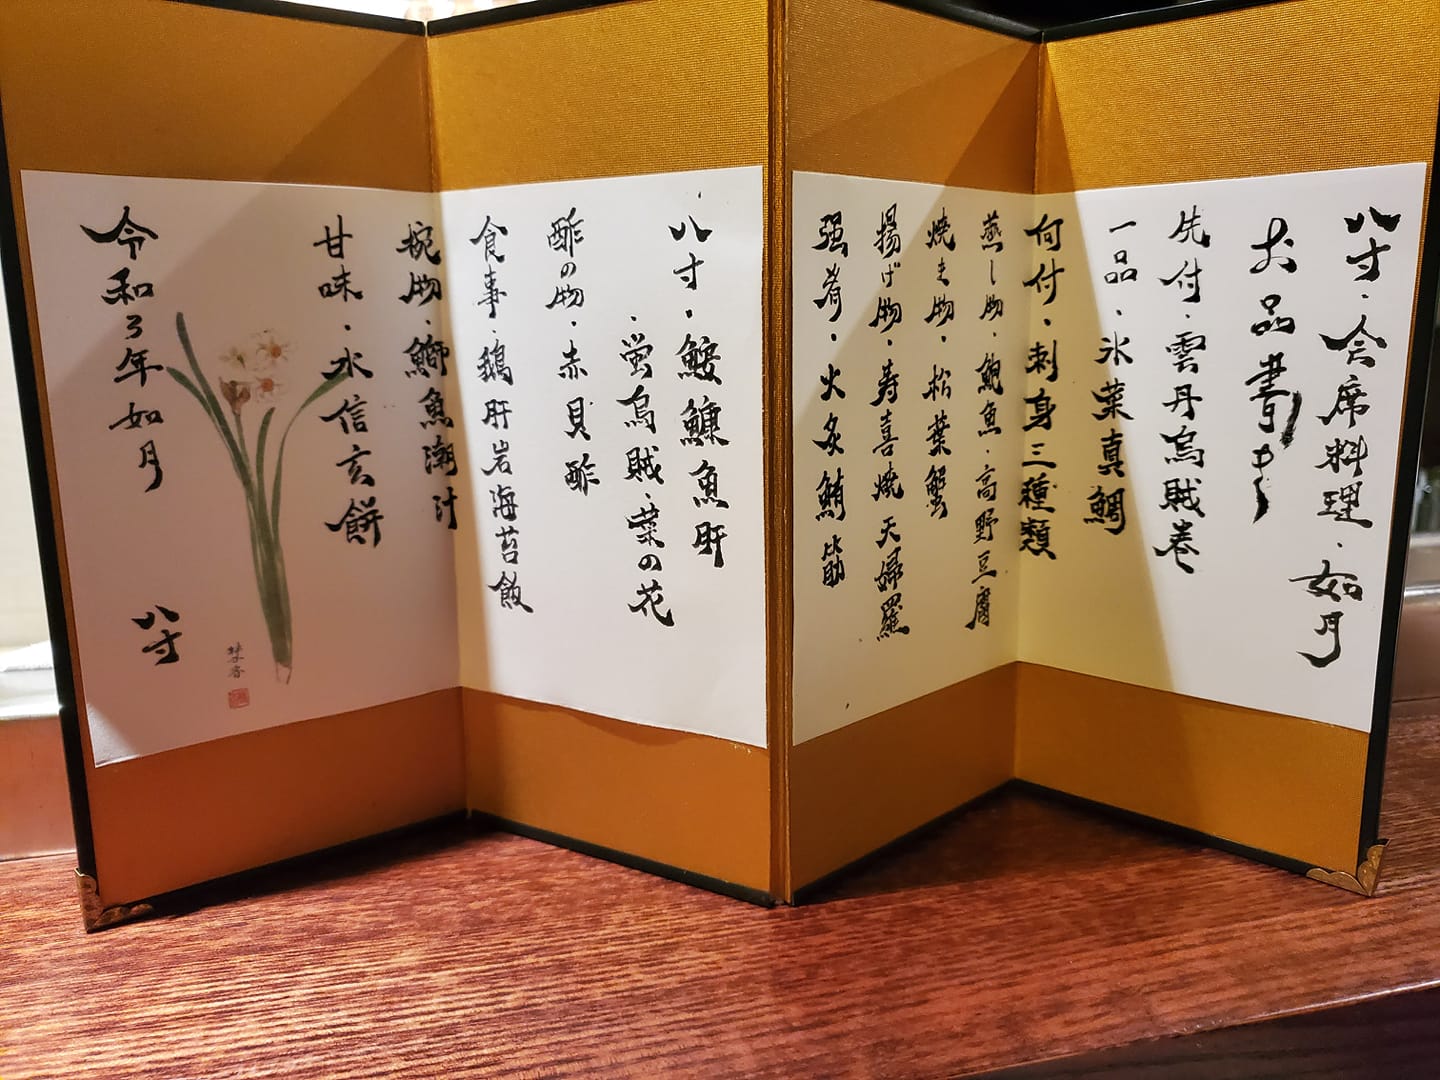 八寸・会席料理・如月
お品書き
先付・雲丹烏賊巻
一品・氷菜真鯛
向付・刺身三種類
蒸し物・鮑魚・高野豆腐
焼き物・松葉蟹
揚げ物・寿喜焼天婦羅
强肴・火炙鮪筋
八寸・鮟鱇魚肝
・蛍烏賊・菜の花
酢の物・赤貝酢
食事・鵝肝岩海苔飯
椀物・鰤魚潮汁
甘味・水信玄餅
令和3年如月
八寸